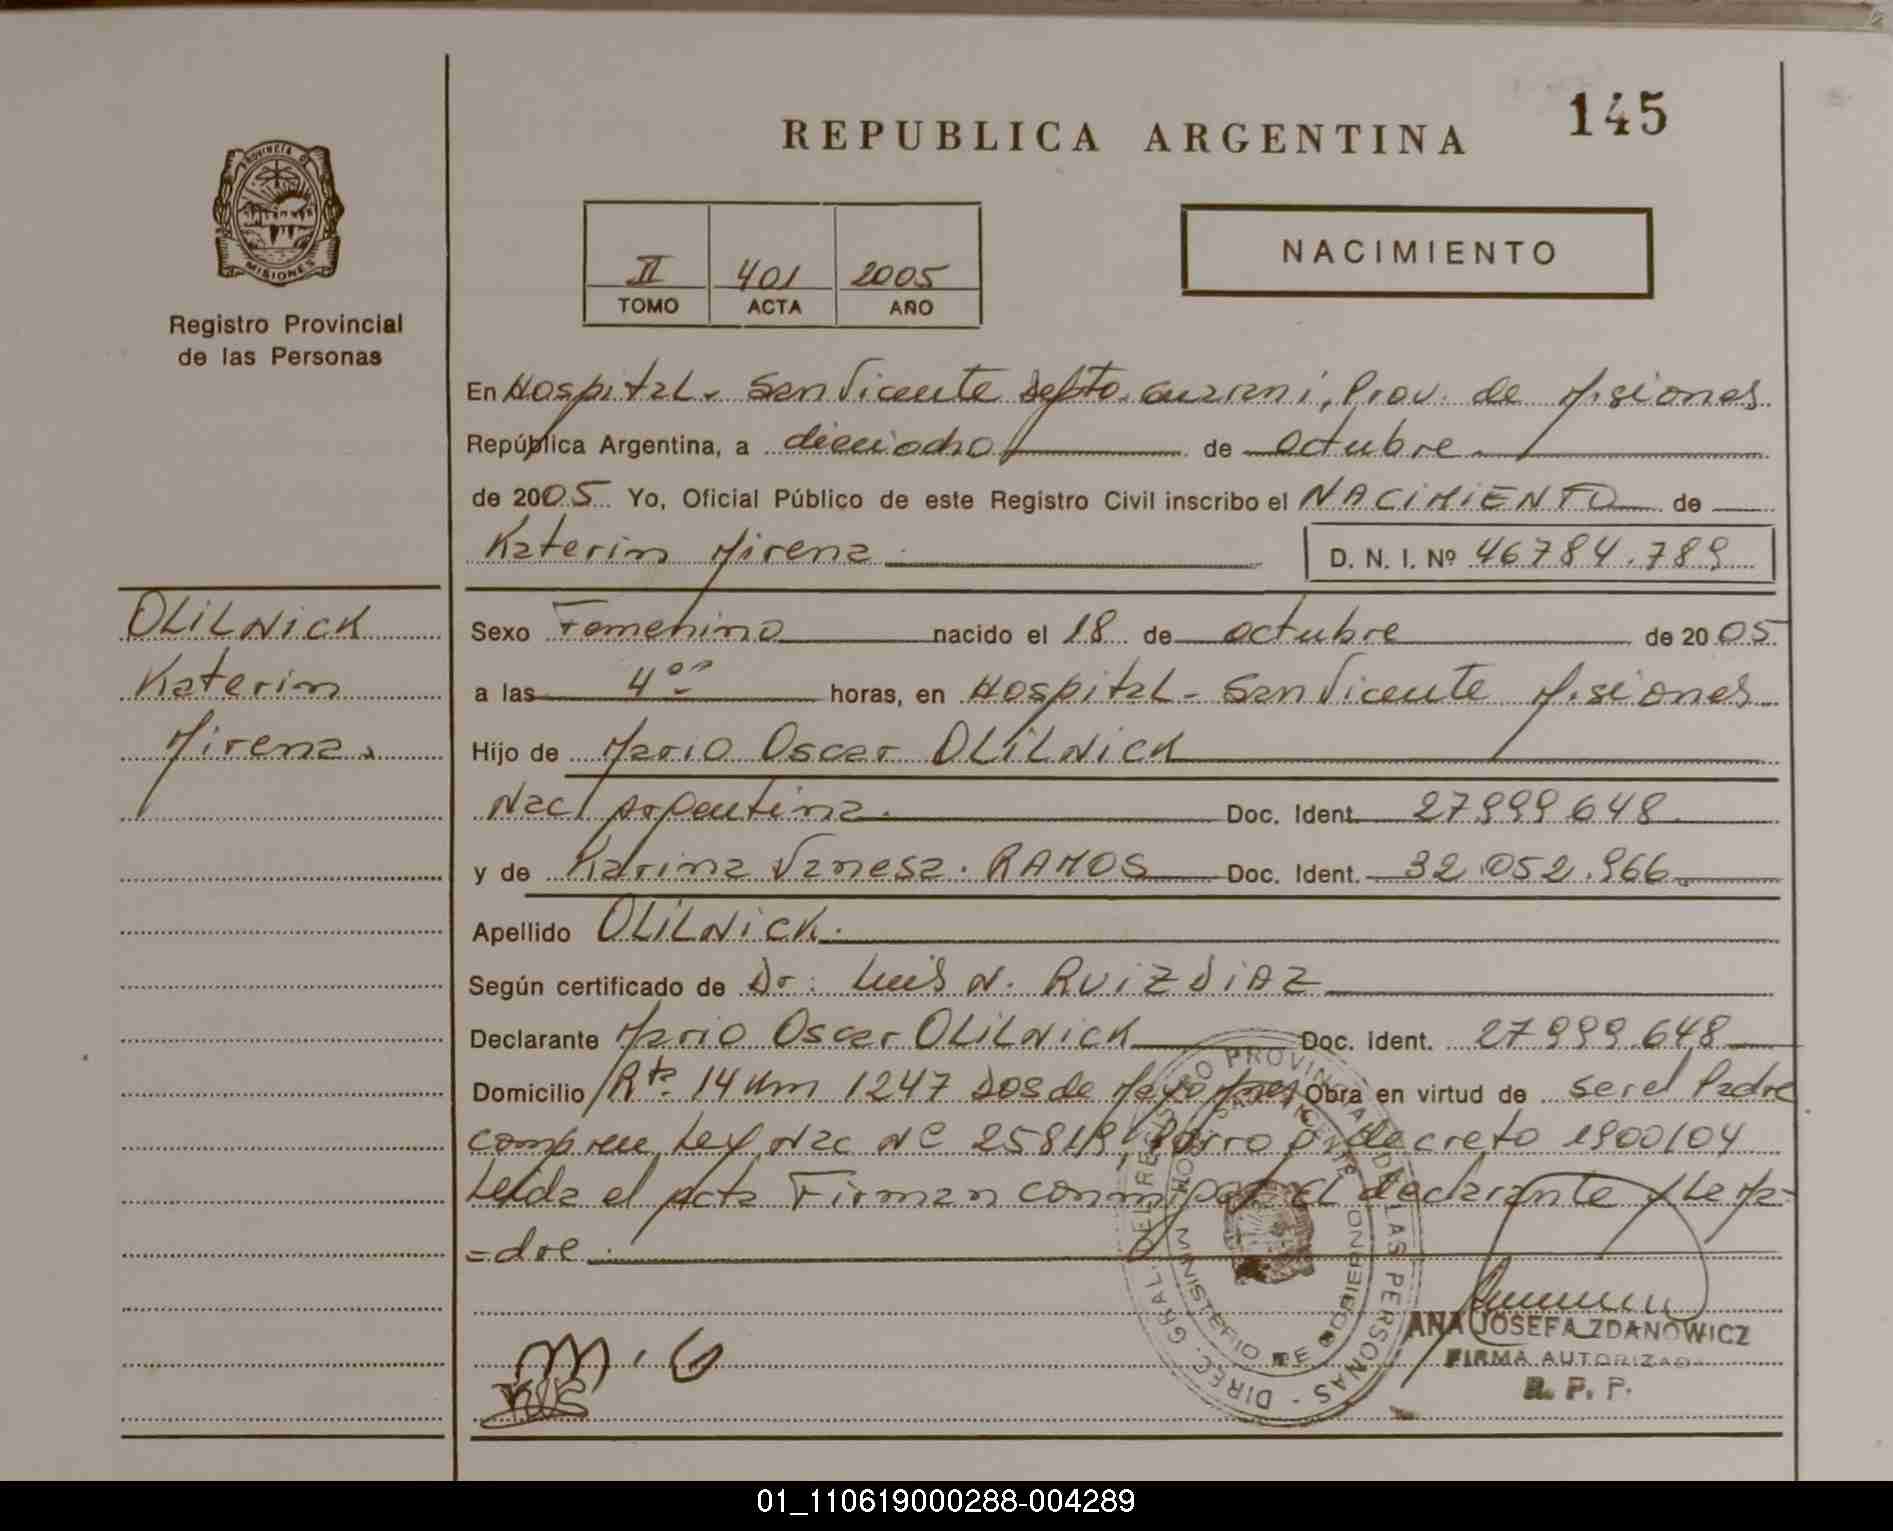 145
REPUBLICA ARGENTINA
NACIMIENTO
II 401 2005
TOMO ACTA AÑO
PROVINCIA D MISIONES
Registro Provincial
de las Personas
En Hospital - San Vicente Depto. Guarani, Prov. de Misiones
República Argentina, a dieciocho de octubre
de 2005 Yo, Oficial Público de este Registro Civil inscribo el NACIMIENTO de
Katerin Mirena D. N. I. Nº 46784.789
OLILNICK
Katerin
Mirena.
Sexo Femenino nacido el 18 de octubre de 2005
a las 4 00 horas, en Hospital - San Vicente Misiones
Hijo de Mario Oscar OLILNICK
Nac Argentina. Doc. Ident. 27999648
y de Karina Vanesa. RAMOS Doc. Ident. 32.052.966
Apellido OLILNICK.
Según certificado de Dr: Luis N. RUIZ DIAZ
Declarante Mario Oscar OLILNICK Doc. Ident. 27999648
Domicilio Rta. 14 Km 1247 Dos de Mayo Obra en virtud de ser el Padre
Ley Nac Nº 25819, decreto 1900/04
Leida el Acta Firman el declarante y la Ma-
=dre.
DIREC. GRAL. DEL REGISTRO PROVINCIAL DE LAS PERSONAS
MINISTERIO DE GOBIERNO
ANA JOSEFA ZDANOWICZ
FIRMA AUTORIZADA
R. P. P.
01_110619000288-004289